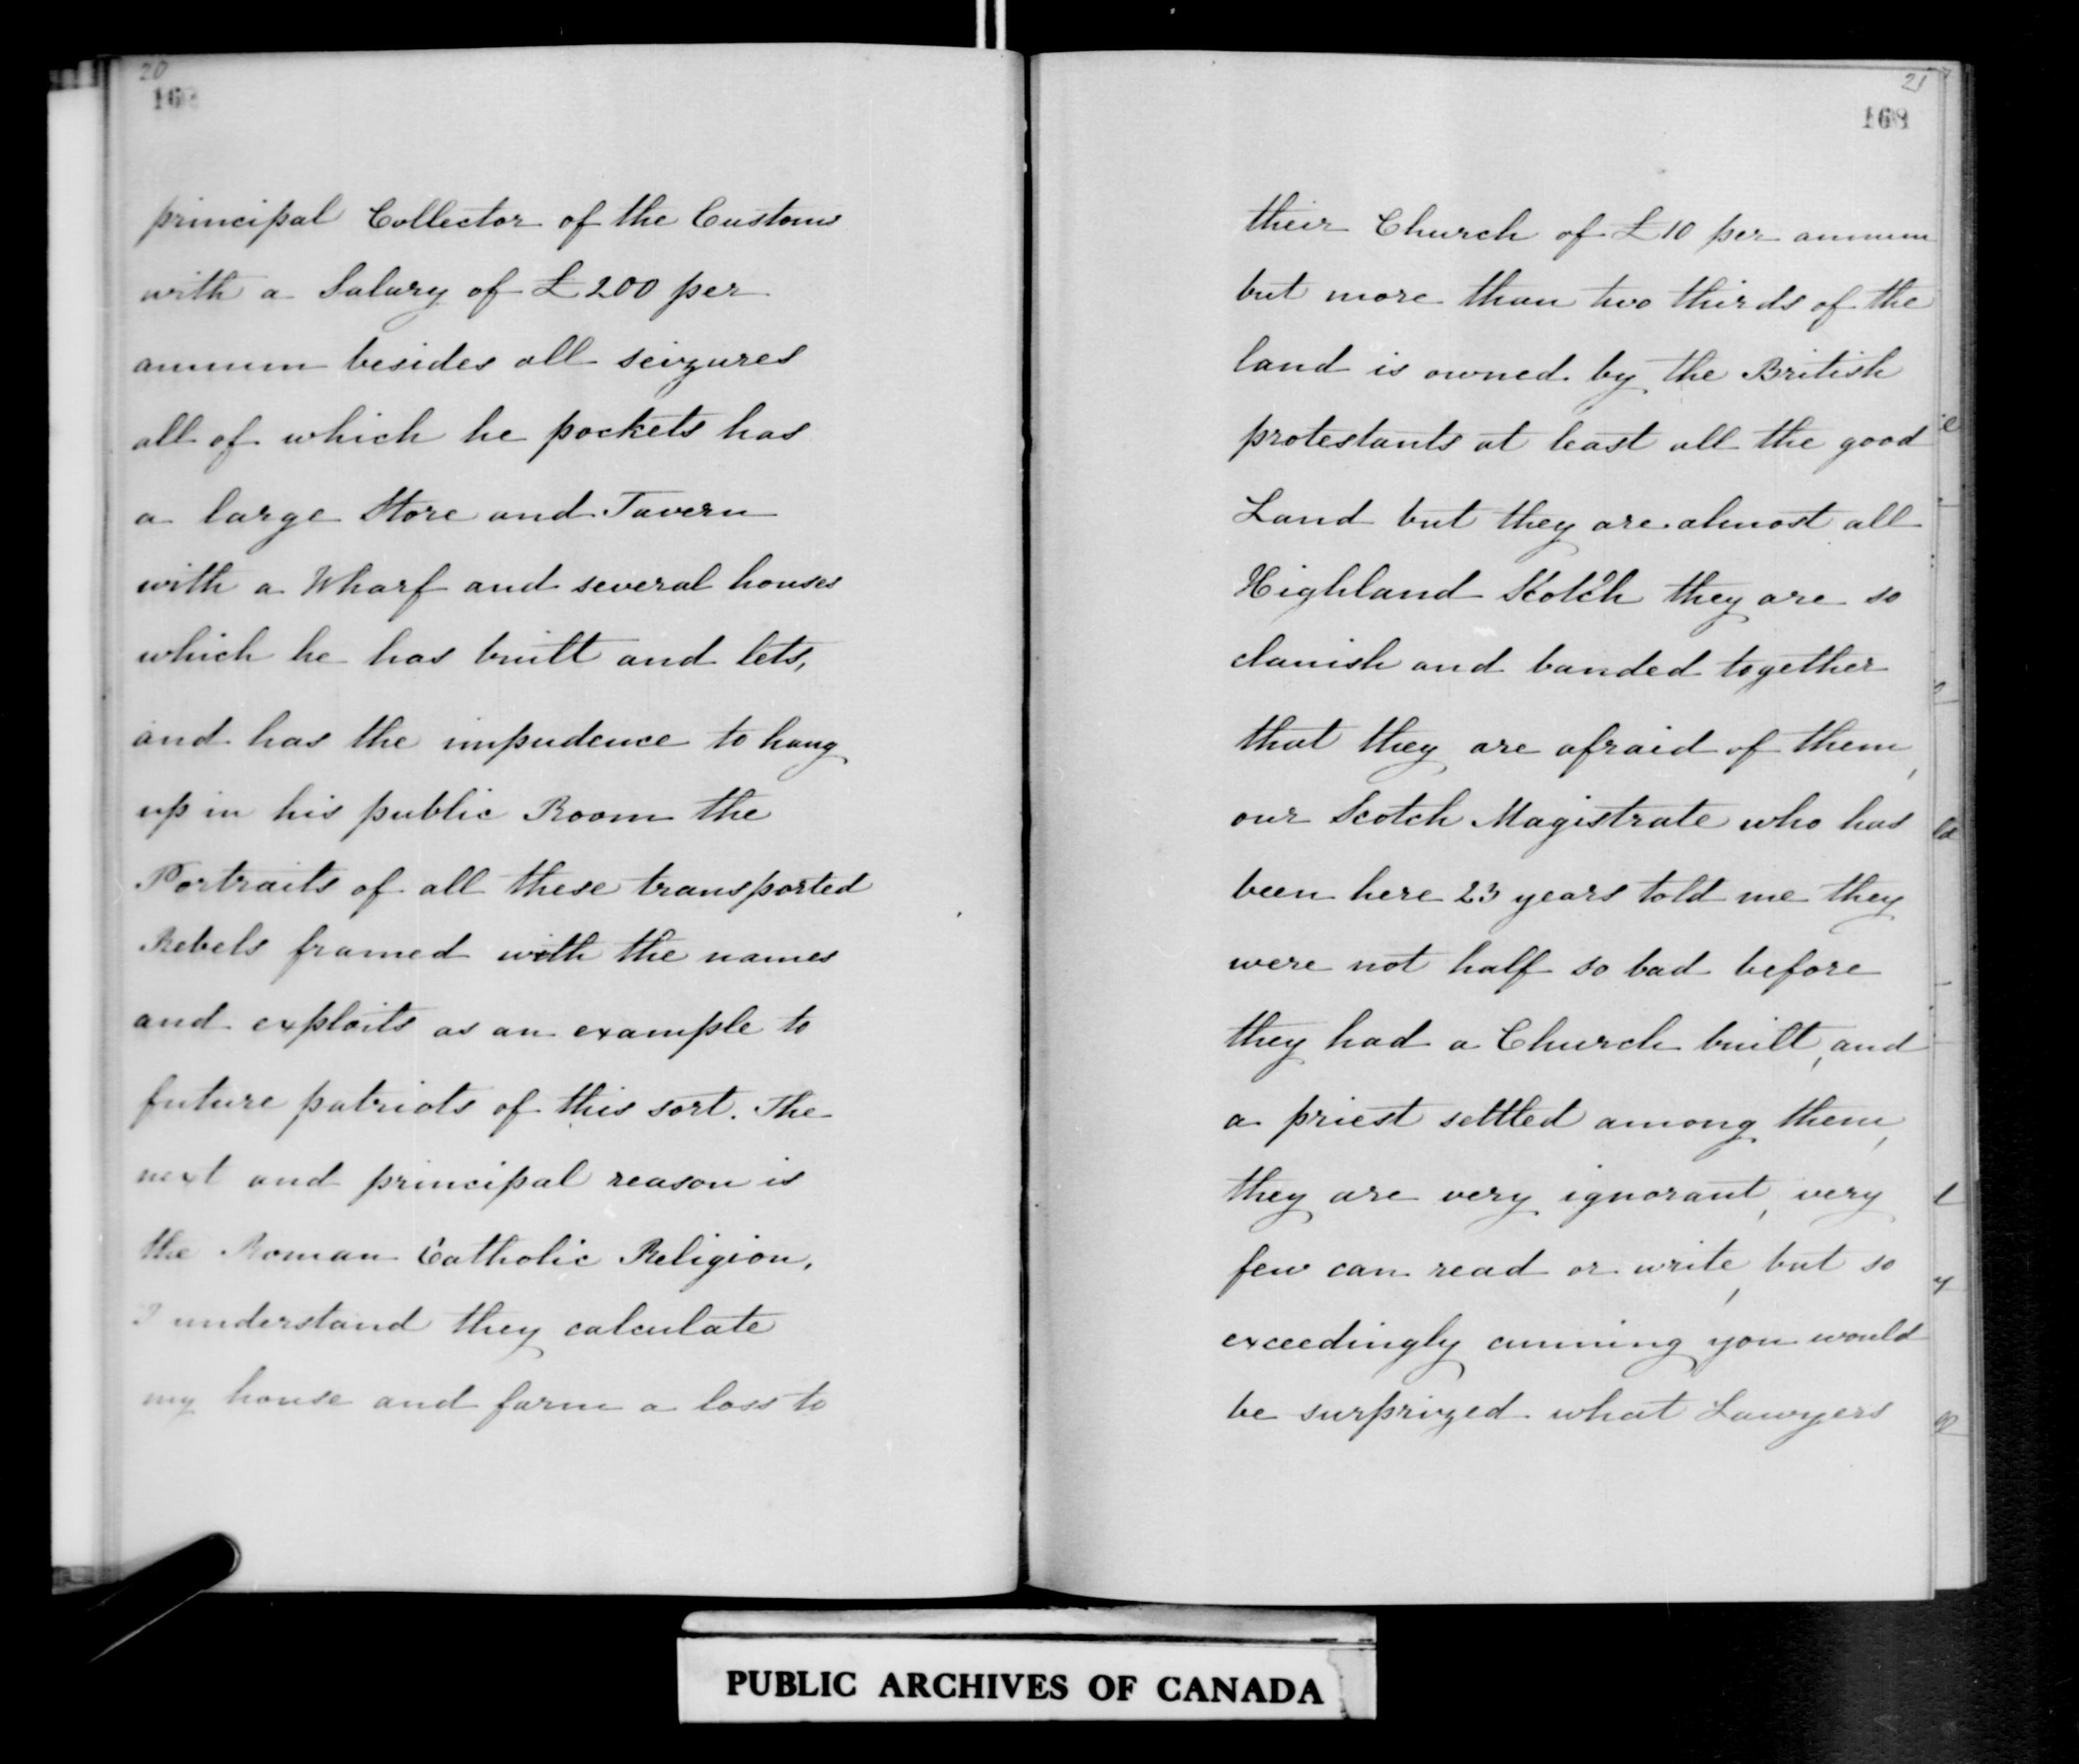 20
principal Collector of the Customs
with a Salary of £200 per
annum besides all seizures
all of which he pockets has
a large Store and Tavern
with a Wharf and several houses
which he has built and lets,
and has the impudence to hang
up in his public Room the
Portraits of all these transported
Rebels framed with the names
and exploits as an example to
future patriots of this sort. The
next and principal reason is
the Roman Catholic Religion,
I understand they calculate
my house and farm a loss to
21
168
their Church of £10 per annum
but more than two thirds of the
land is owned by the British
protestants at least all the good
Land but they are almost all
Highland Scotch they are so
clanish and banded together
that they are afraid of them,
our Scotch Magistrate who has
been here 23 years told me they
were not half so bad before
they had a Church built, and
a priest settled among them,
they are very ignorant, very
few can read or write, but so
exceedingly cunning you would
be surprized what Lawyers
PUBLIC ARCHIVES OF CANADA